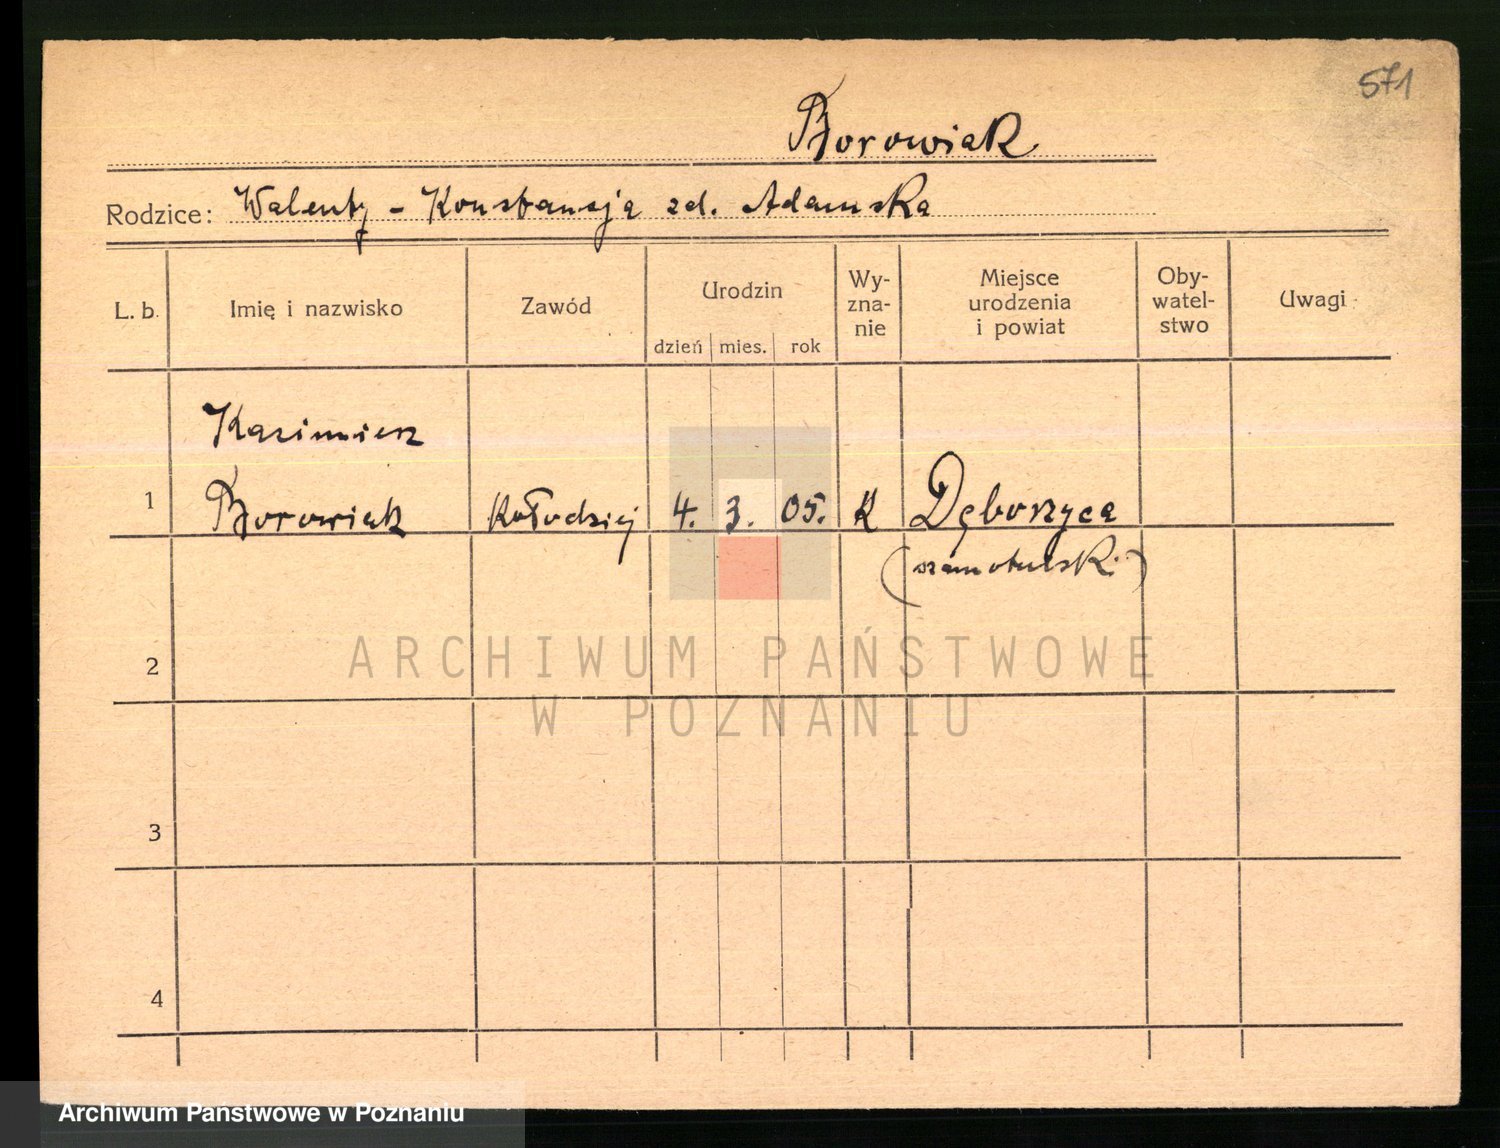 571
Borowiak
Rodzice: Walenty - Konstancja zd. Adamska
L. b.
Imię i nazwisko
Zawód
Urodzin
dzień mies. rok
Wy-
zna-
nie
Miejsce
urodzenia
i powiat
Oby-
watel-
stwo
Uwagi
Kazimierz
1 Borowiak Kołodziej 4. 3. 05. K Dęborzyca
(szamotulski)
2
ARCHIWUM PAŃSTWOWE
W POZNANIU
3
4
Archiwum Państwowe w Poznaniu